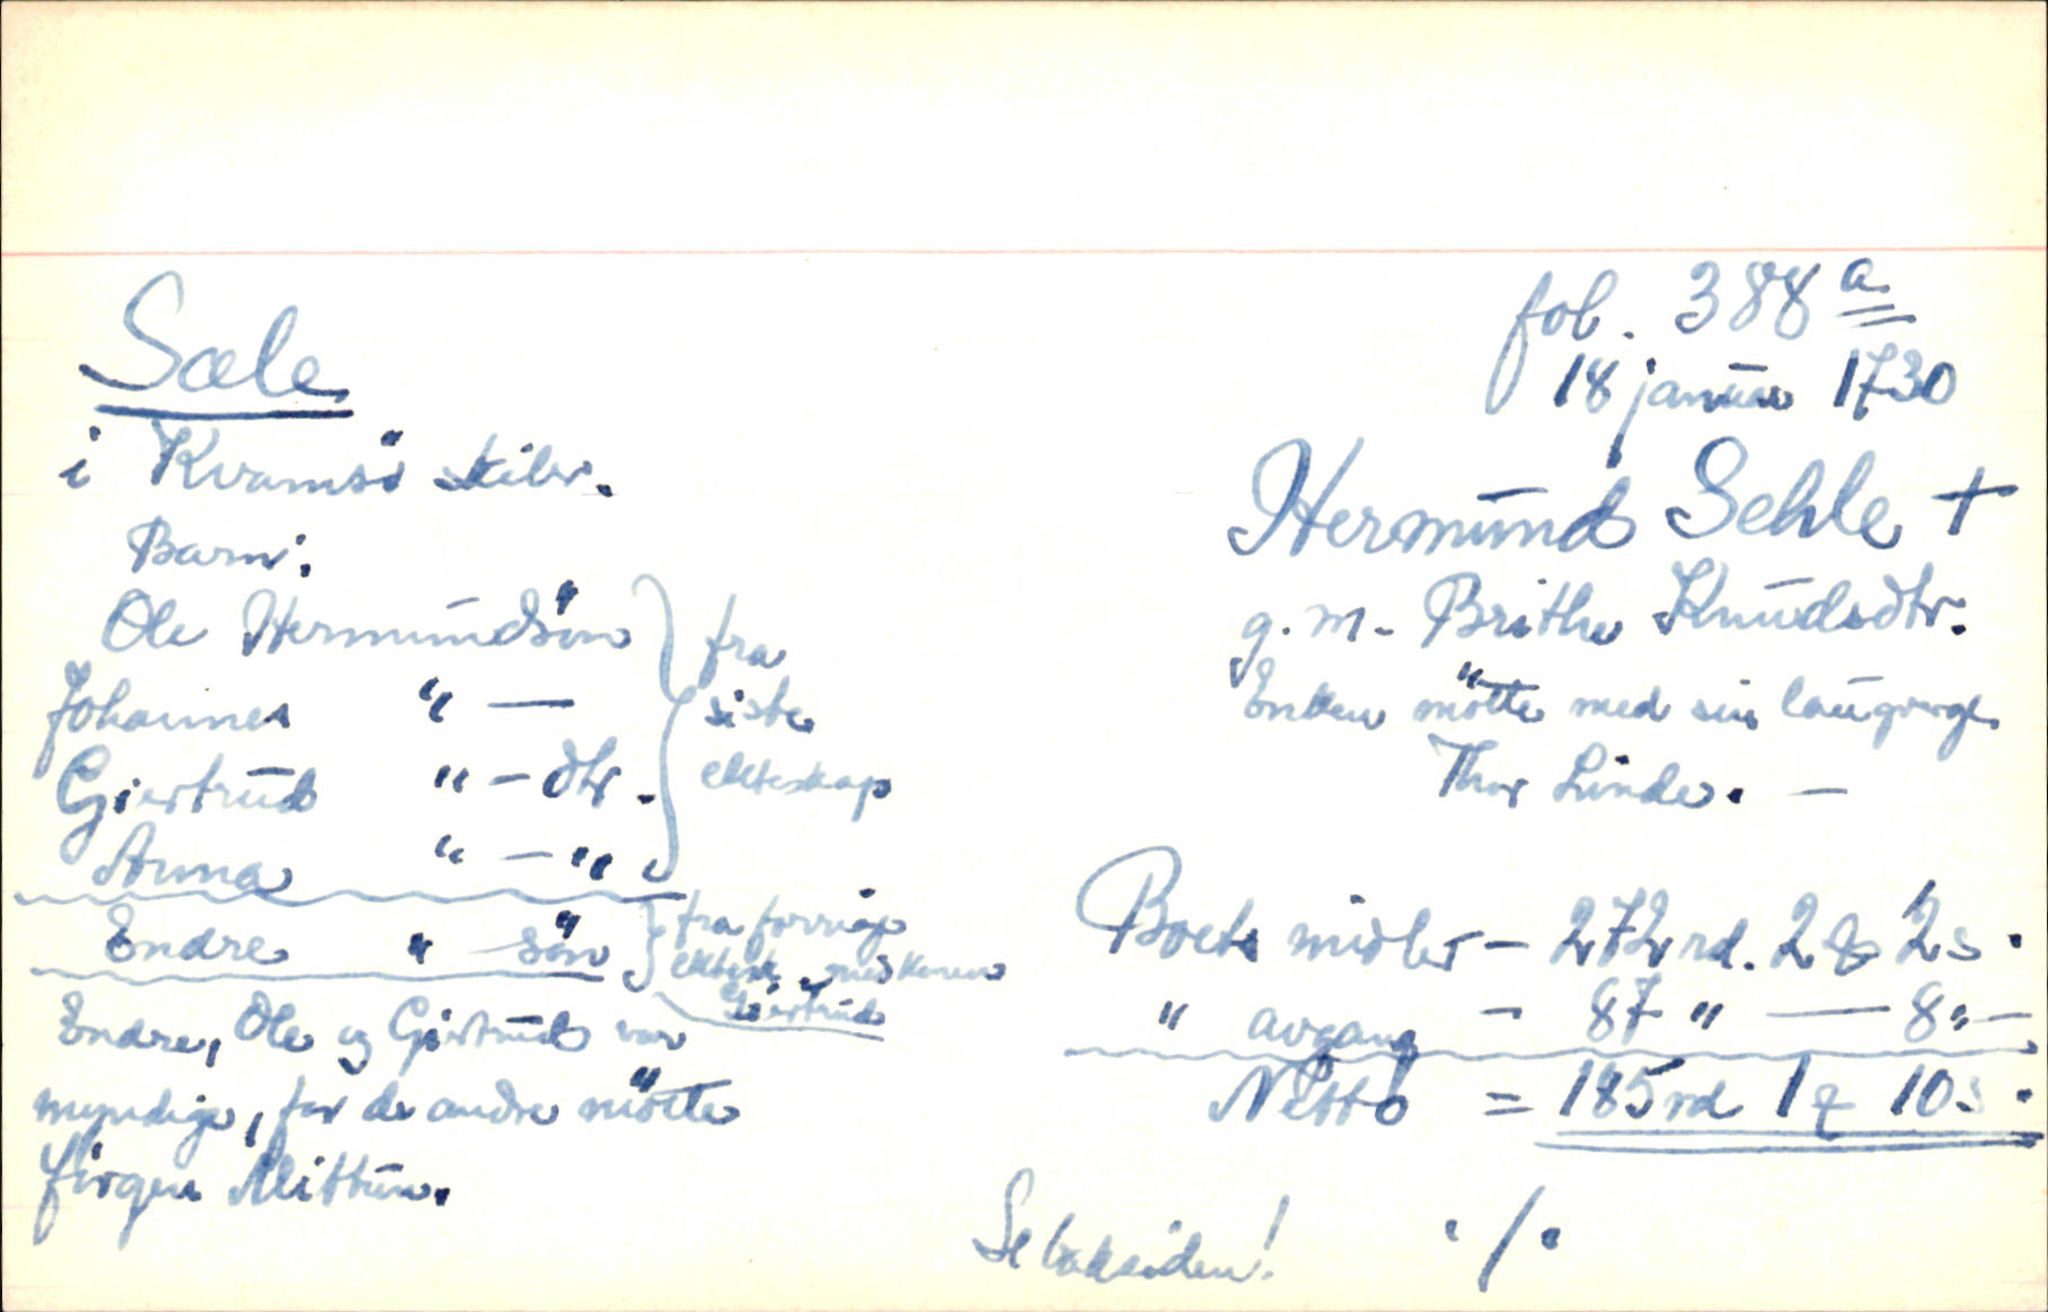 Sæle
i Kvamsö skibr.
Barn:
Ole Hermundsön
Johannes " —
Giertrud " — dtr.
Anna " — "
fra
siste
ekteskap
Endre " sön
fra forrige
ektesk. med konen
Giertrud
Endre, Ole og Giertrud var
myndige, for de andre mötte
Jörgen Mittun.
fol. 388 a
18 januar 1730
Hermund Sehle +
g. m. Brithe Knudsdtr.
Enken mötte med sin laugverge
Thor Linde. —
Boets midler — 272 rd. 2 2 s.
" avgang — 87 " — 8 " —
Netto = 185 rd 1 10 s.
Se baksiden! ./.